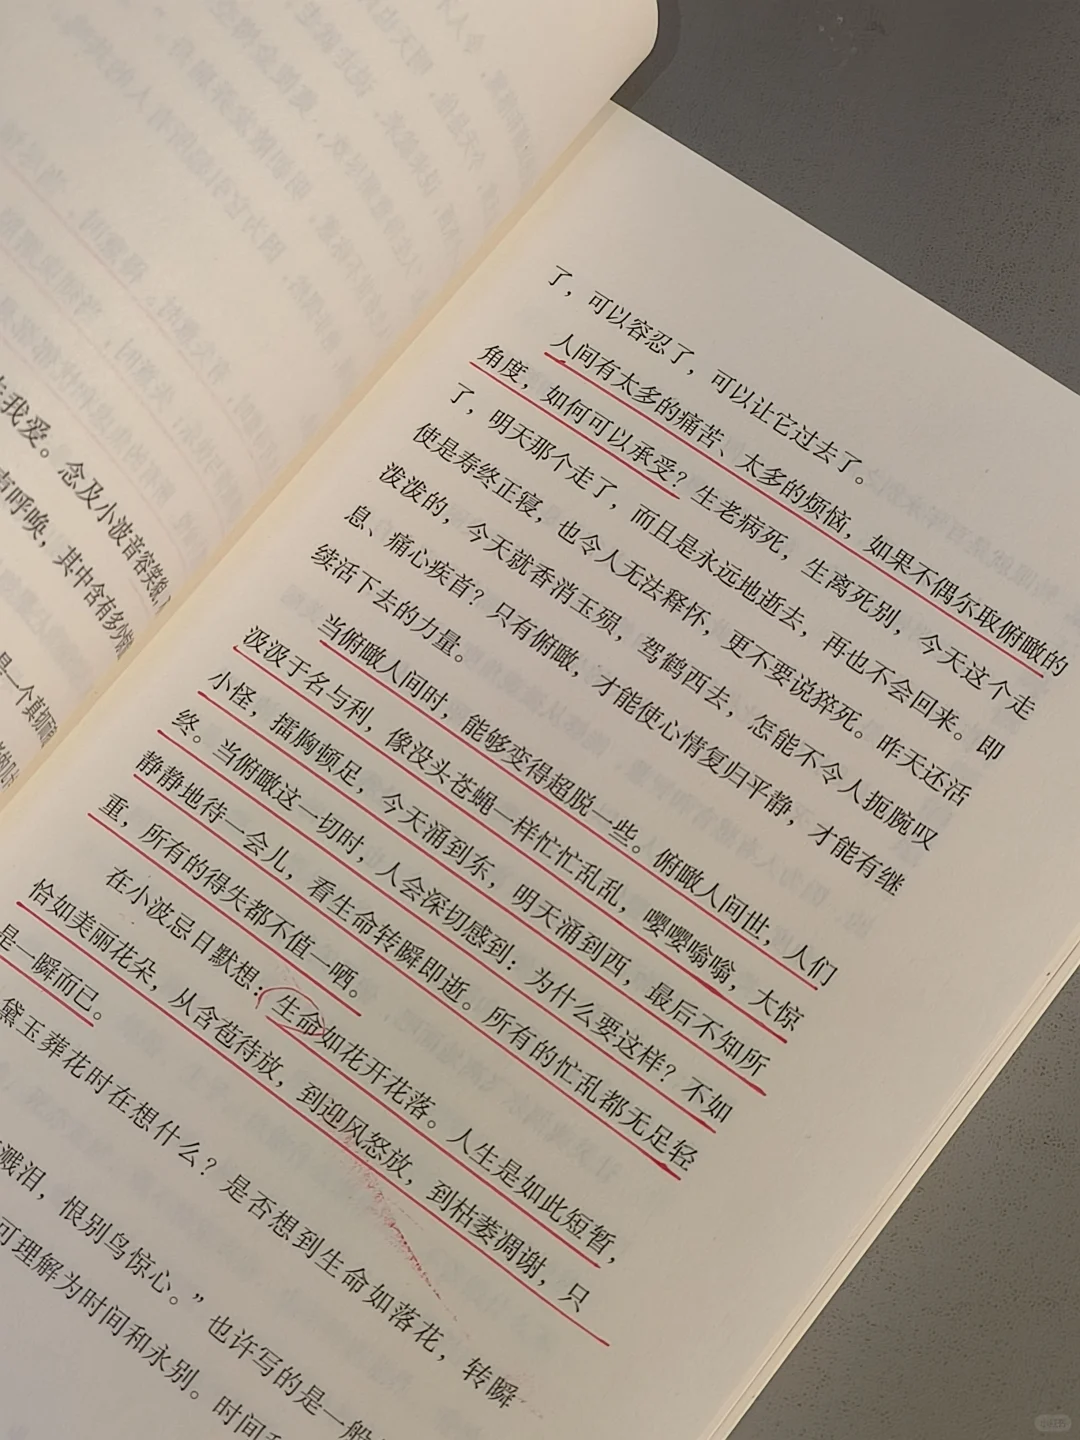 走我爱。念及小波音容笑貌,
声呼唤，其中含有多少
是一个真切
了，可以容忍了，可以让它过去了。
人间有太多的痛苦、太多的烦恼，如果不偶尔取俯瞰的
角度，如何可以承受？生老病死，生离死别，今天这个走
了，明天那个走了，而且是永远地逝去，再也不会回来。即
使是寿终正寝，也令人无法释怀，更不要说猝死。昨天还活
泼泼的，今天就香消玉殒，驾鹤西去，怎能不令人扼腕叹
息、痛心疾首？只有俯瞰，才能使心情复归平静，才能有继
续活下去的力量。
当俯瞰人间时，能够变得超脱一些。俯瞰人间世，人们
汲汲于名与利，像没头苍蝇一样忙忙乱乱，嘤嘤嗡嗡，大惊
小怪，擂胸顿足，今天涌到东，明天涌到西，最后不知所
终。当俯瞰这一切时，人会深切感到：为什么要这样？不如
静静地待一会儿，看生命转瞬即逝。所有的忙乱都无足轻
重，所有的得失都不值一哂。
在小波忌日默想：生命如花开花落。人生是如此短暂，
恰如美丽花朵，从含苞待放，到迎风怒放，到枯萎凋谢，只
是一瞬而已。
黛玉葬花时在想什么？是否想到生命如落花，转瞬
溅泪，恨别鸟惊心。”也许写的是一般
可理解为时间和永别。时间